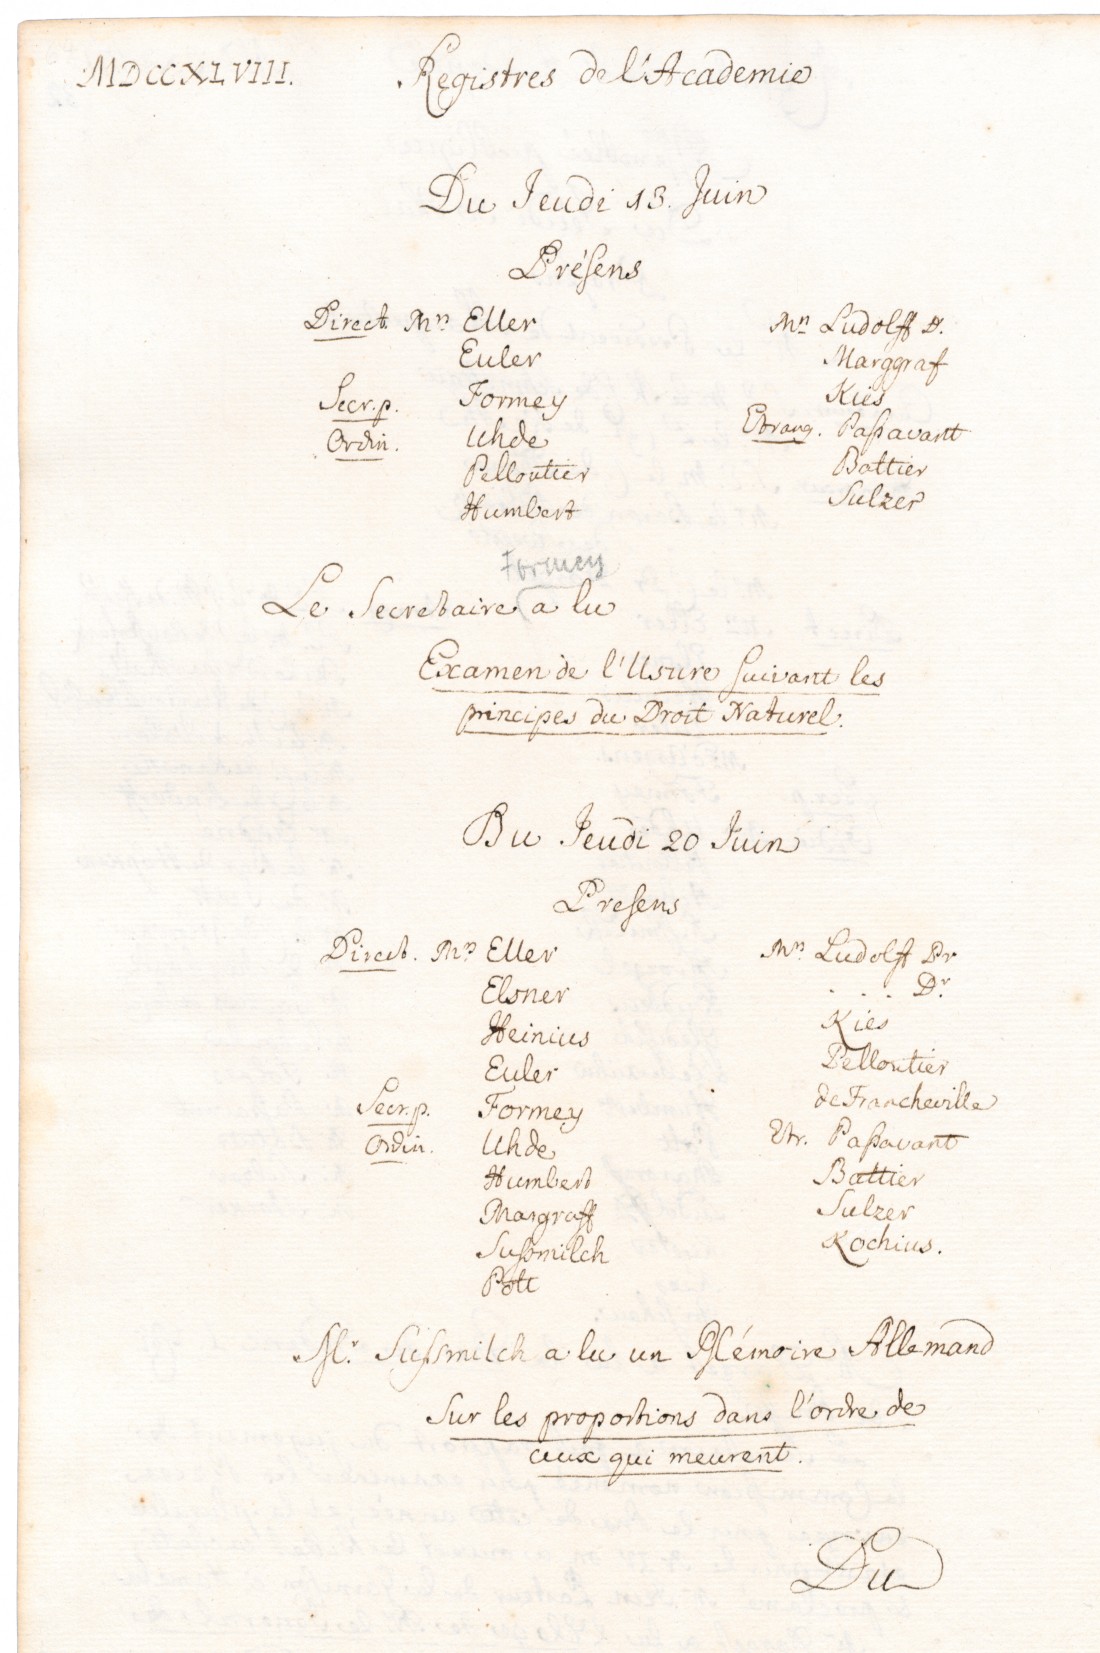 MDCCXLVIII. Registres de l'Academie
Du Jeudi 13. Juin
Présens
Direct. Mrs Eller
Euler
Secr. p. Formey
Ordin. Uhde
Pelloutier
Humbert
Mrs Ludolff D.
Marggraf
Kies
Etrang. Paßavant
Battier
Sulzer
Formey
Le Secretaire a lu
Examen de l'Usure suivant les
principes du Droit Naturel.
Du Jeudi 20 Juin
Presens
Direct. Mrs Eller
Elsner
Heinius
Euler
Secr. p. Formey
Ordin. Uhde
Humbert
Margraff
Sußmilch
Pott
Mrs Ludolff Pr
. . . Dr.
Kies
Pelloutier
de Francheville
Etr. Paßavant
Battier
Sulzer
Kochius.
Mr. Sußmilch a lu un Mémoire Allemand
sur les proportions dans l'ordre de
ceux qui meurent.
Du